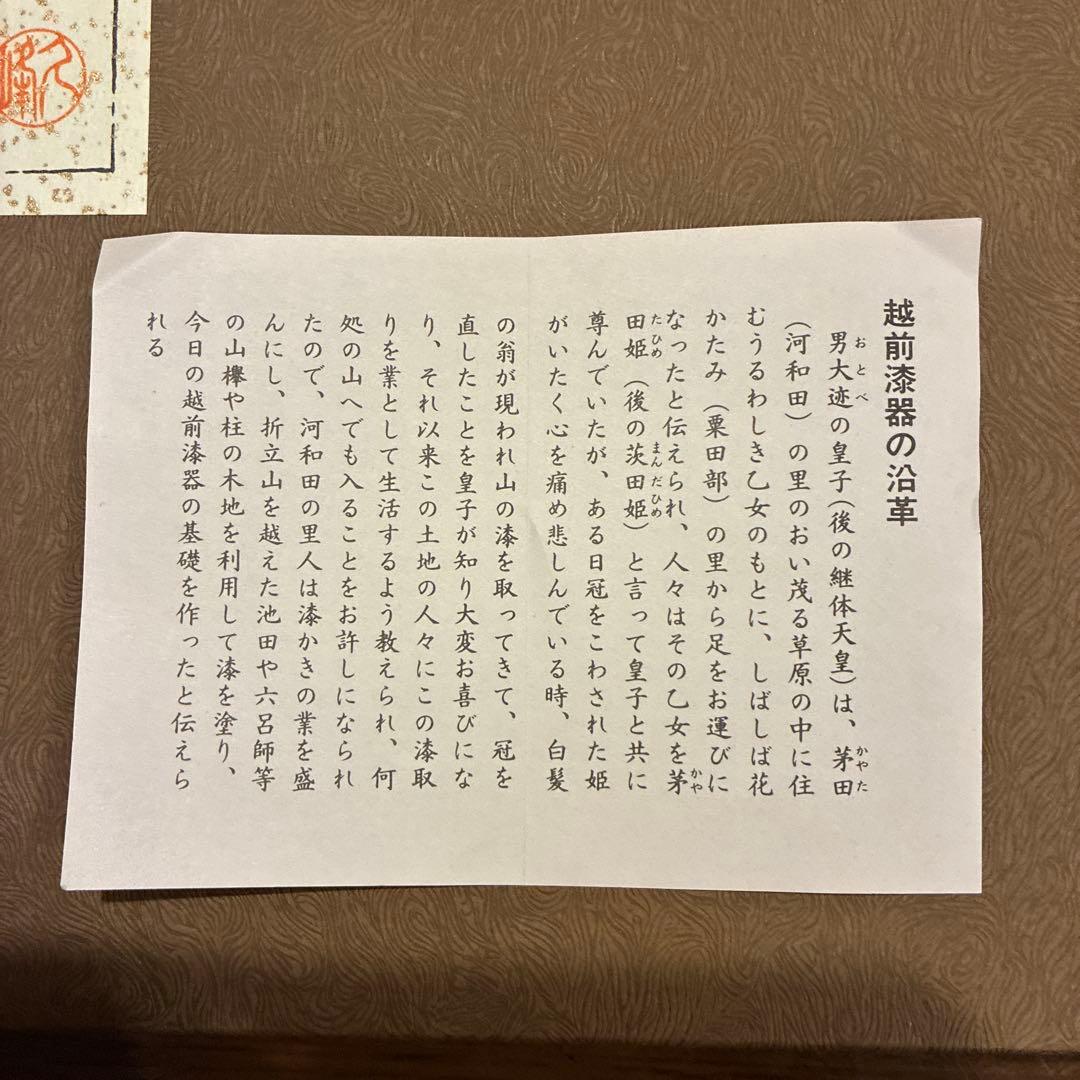 越前漆器の沿革
男大迹の皇子(後の継体天皇)は、茅田
おとべ
かやた
(河和田)の里のおい茂る草原の中に住
むうるわしき乙女のもとに、しばしば花
かたみ(粟田部)の里から足をお運びに
なったと伝えられ、人々はその乙女を茅
かや
田姫(後の茨田姫)と言って皇子と共に
たひめ
まんだひめ
尊んでいたが、ある日冠をこわされた姫
がいたく心を痛め悲しんでいる時、白髪
の翁が現われ山の漆を取ってきて、冠を
直したことを皇子が知り大変お喜びにな
り、それ以来この土地の人々にこの漆取
りを業として生活するよう教えられ、何
処の山へでも入ることをお許しになられ
たので、河和田の里人は漆かきの業を盛
んにし、折立山を越えた池田や六呂師等
の山欅や柱の木地を利用して漆を塗り、
今日の越前漆器の基礎を作ったと伝えら
れる